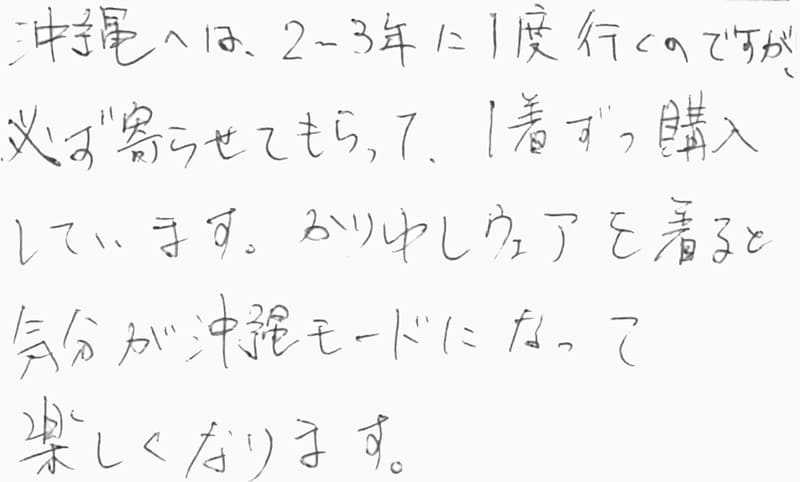 沖縄へは、2~3年に1度行くのですが、
必ず寄らせてもらって、1着ずつ購入
しています。かりゆしウェアを着ると
気分が沖縄モードになって
楽しくなります。